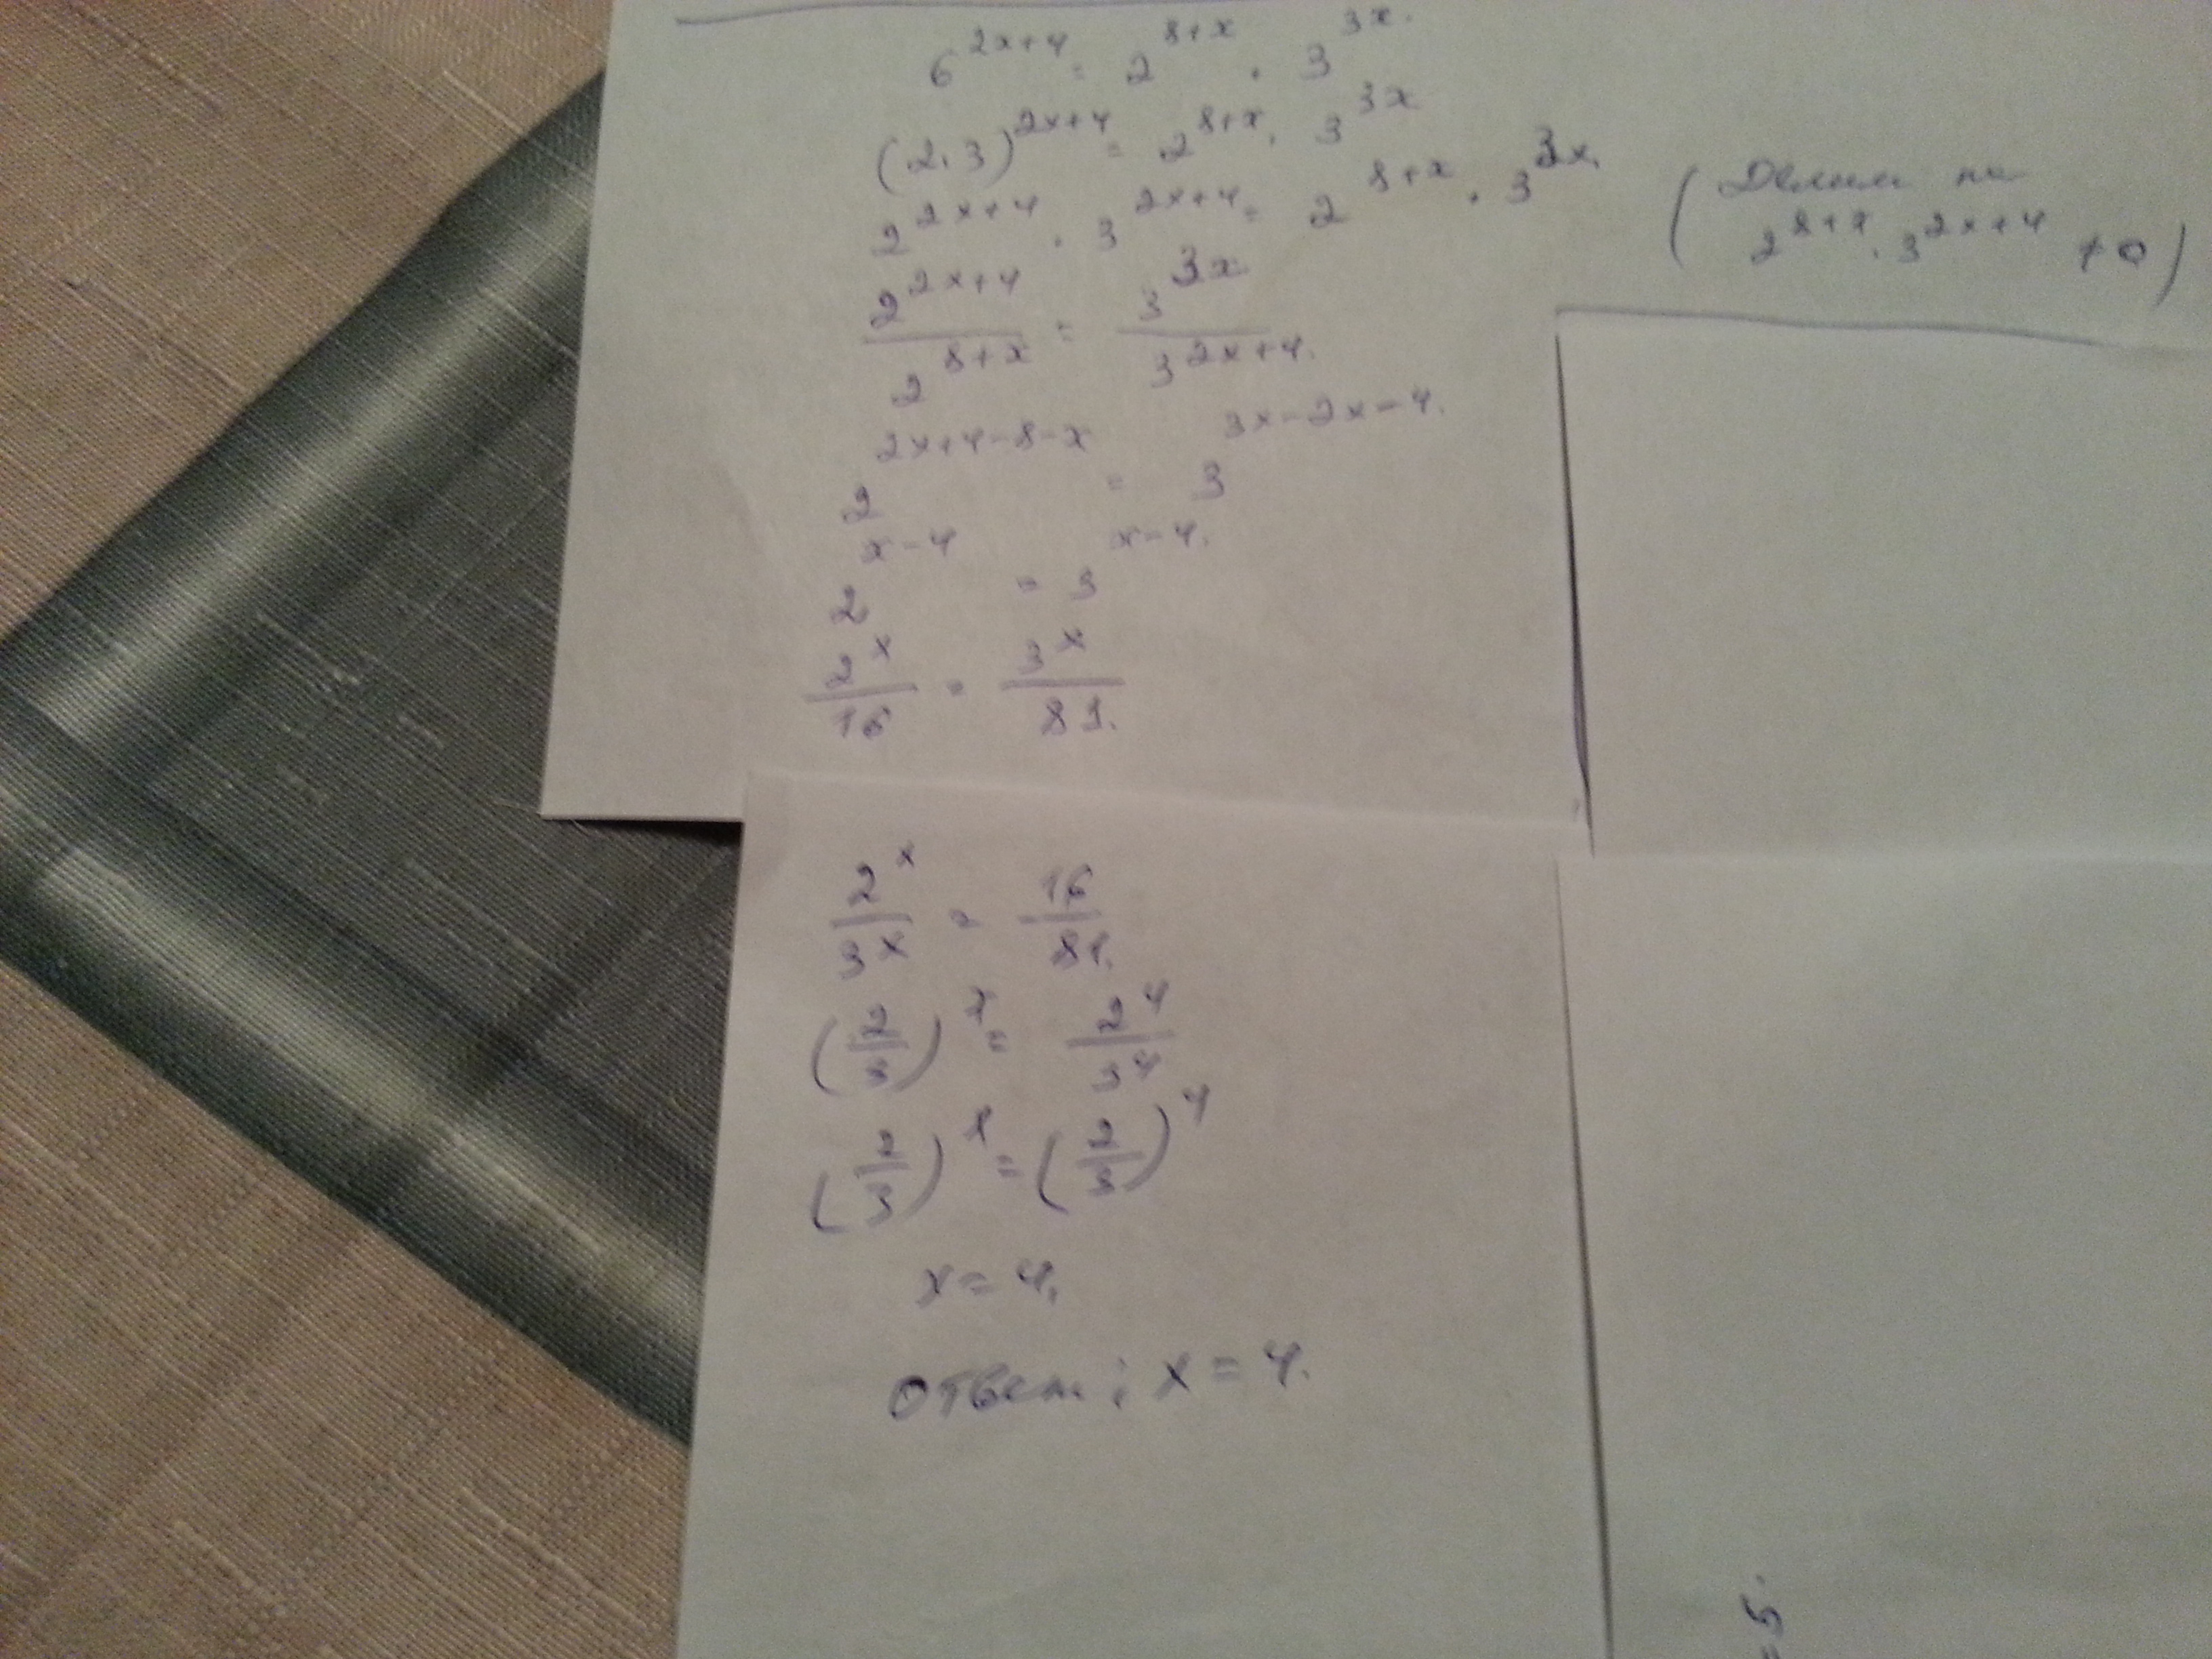 6^{2x+4} = 2^{8+x} · 3^{3x}.
(2·3)^{2x+4} = 2^{8+x} · 3^{3x}
2^{2x+4} · 3^{2x+4} = 2^{8+x} · 3^{3x}. (Делим на
2^{8+x} · 3^{2x+4} ≠ 0)
\frac{2^{2x+4}}{2^{8+x}} = \frac{3^{3x}}{3^{2x+4}}.
2^{2x+4-8-x} = 3^{3x-2x-4}.
2^{x-4} = 3^{x-4}.
\frac{2^x}{16} = \frac{3^x}{81}.
\frac{2^x}{3^x} = \frac{16}{81}.
(\frac{2}{3})^x = \frac{2^4}{3^4}
(\frac{2}{3})^x = (\frac{2}{3})^4
x = 4.
Ответ: x = 4.
= 5.